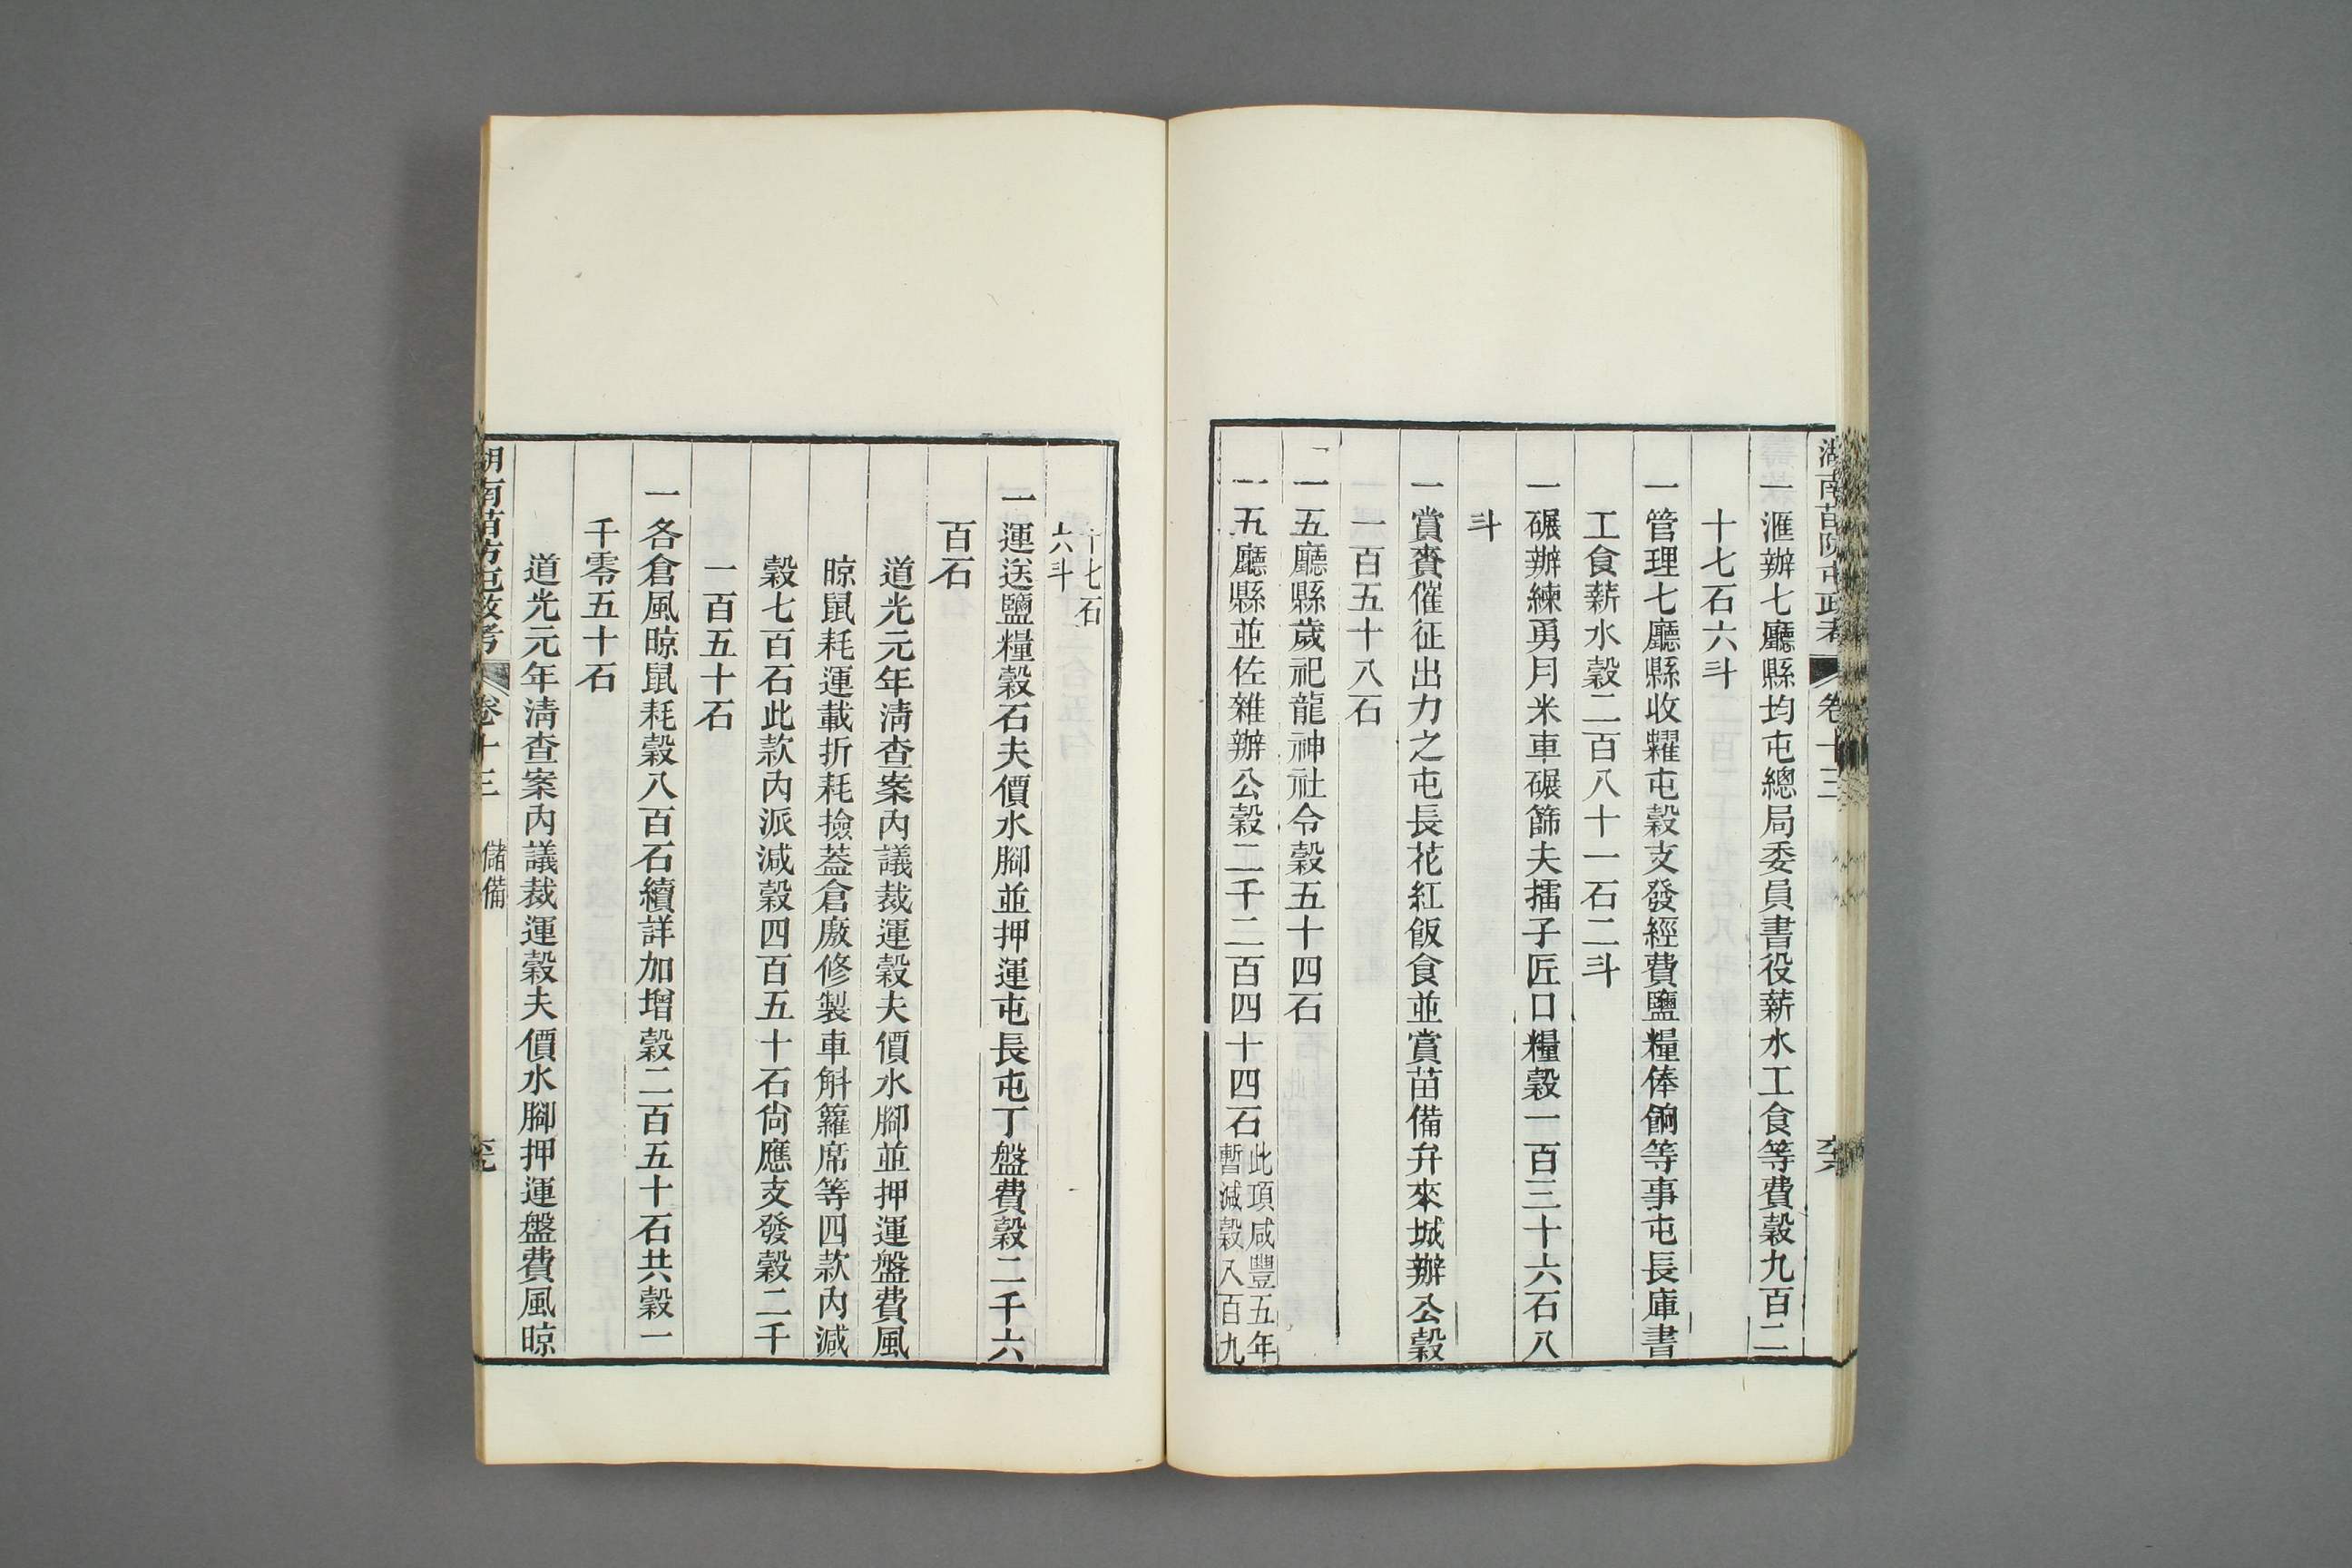 湖南苗防屯政考 卷十三
一滙辦七廳縣均屯總局委員書役薪水工食等費穀九百二
十七石六斗
一管理七廳縣收糶屯穀支發經費鹽糧俸餉等事屯長庫書
工食薪水穀二百八十一石二斗
一碾辦練勇月米車碾篩夫擂子匠口糧穀一百三十六石八
斗
一賞賚催征出力之屯長花紅飯食並賞苗備弁來城辦公穀
一百五十八石
一五廳縣歲祀龍神社令穀五十四石
一五廳縣並佐雜辦公穀二千二百四十四石此項咸豐五年
暫減穀八百九
十七石
六斗
一運送鹽糧穀石夫價水腳並押運屯長屯丁盤費穀二千六
百石
道光元年淸查案內議裁運穀夫價水腳並押運盤費風
晾鼠耗運載折耗撿蓋倉廒修製車斛籮席等四款內減
穀七百石此款內派減穀四百五十石尙應支發穀二千
一百五十石
一各倉風晾鼠耗穀八百石續詳加增穀二百五十石共穀一
千零五十石
道光元年淸查案內議裁運穀夫價水腳押運盤費風晾
湖南苗防屯政考 卷十三 儲備